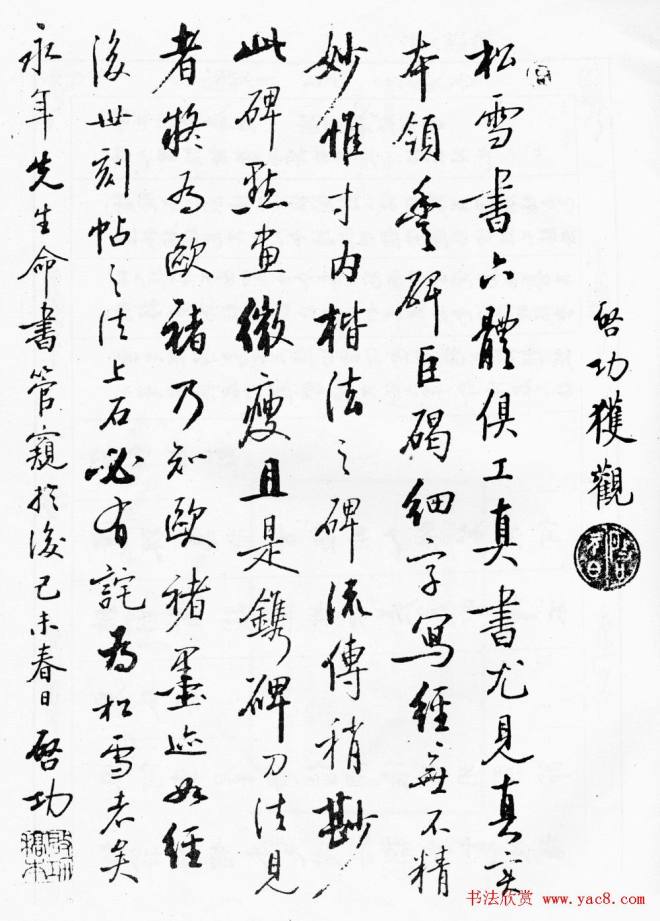 啓功獲觀
松雪書六體俱工真書尤見真實
本領豐碑巨碣細字寫經無不精
妙惟寸内楷法之碑流傳稍尠
此碑點畫微瘦且是鐫碑刀法見
者疑為歐褚乃知歐褚墨迹如經
後世刻帖之法上石必有詫為松雪者矣
永年先生命書管窺於後己未春日 啓功
书法欣赏 www.yac8.com